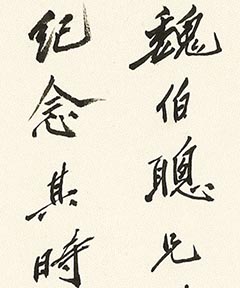 魏伯聰兄
紀念其時